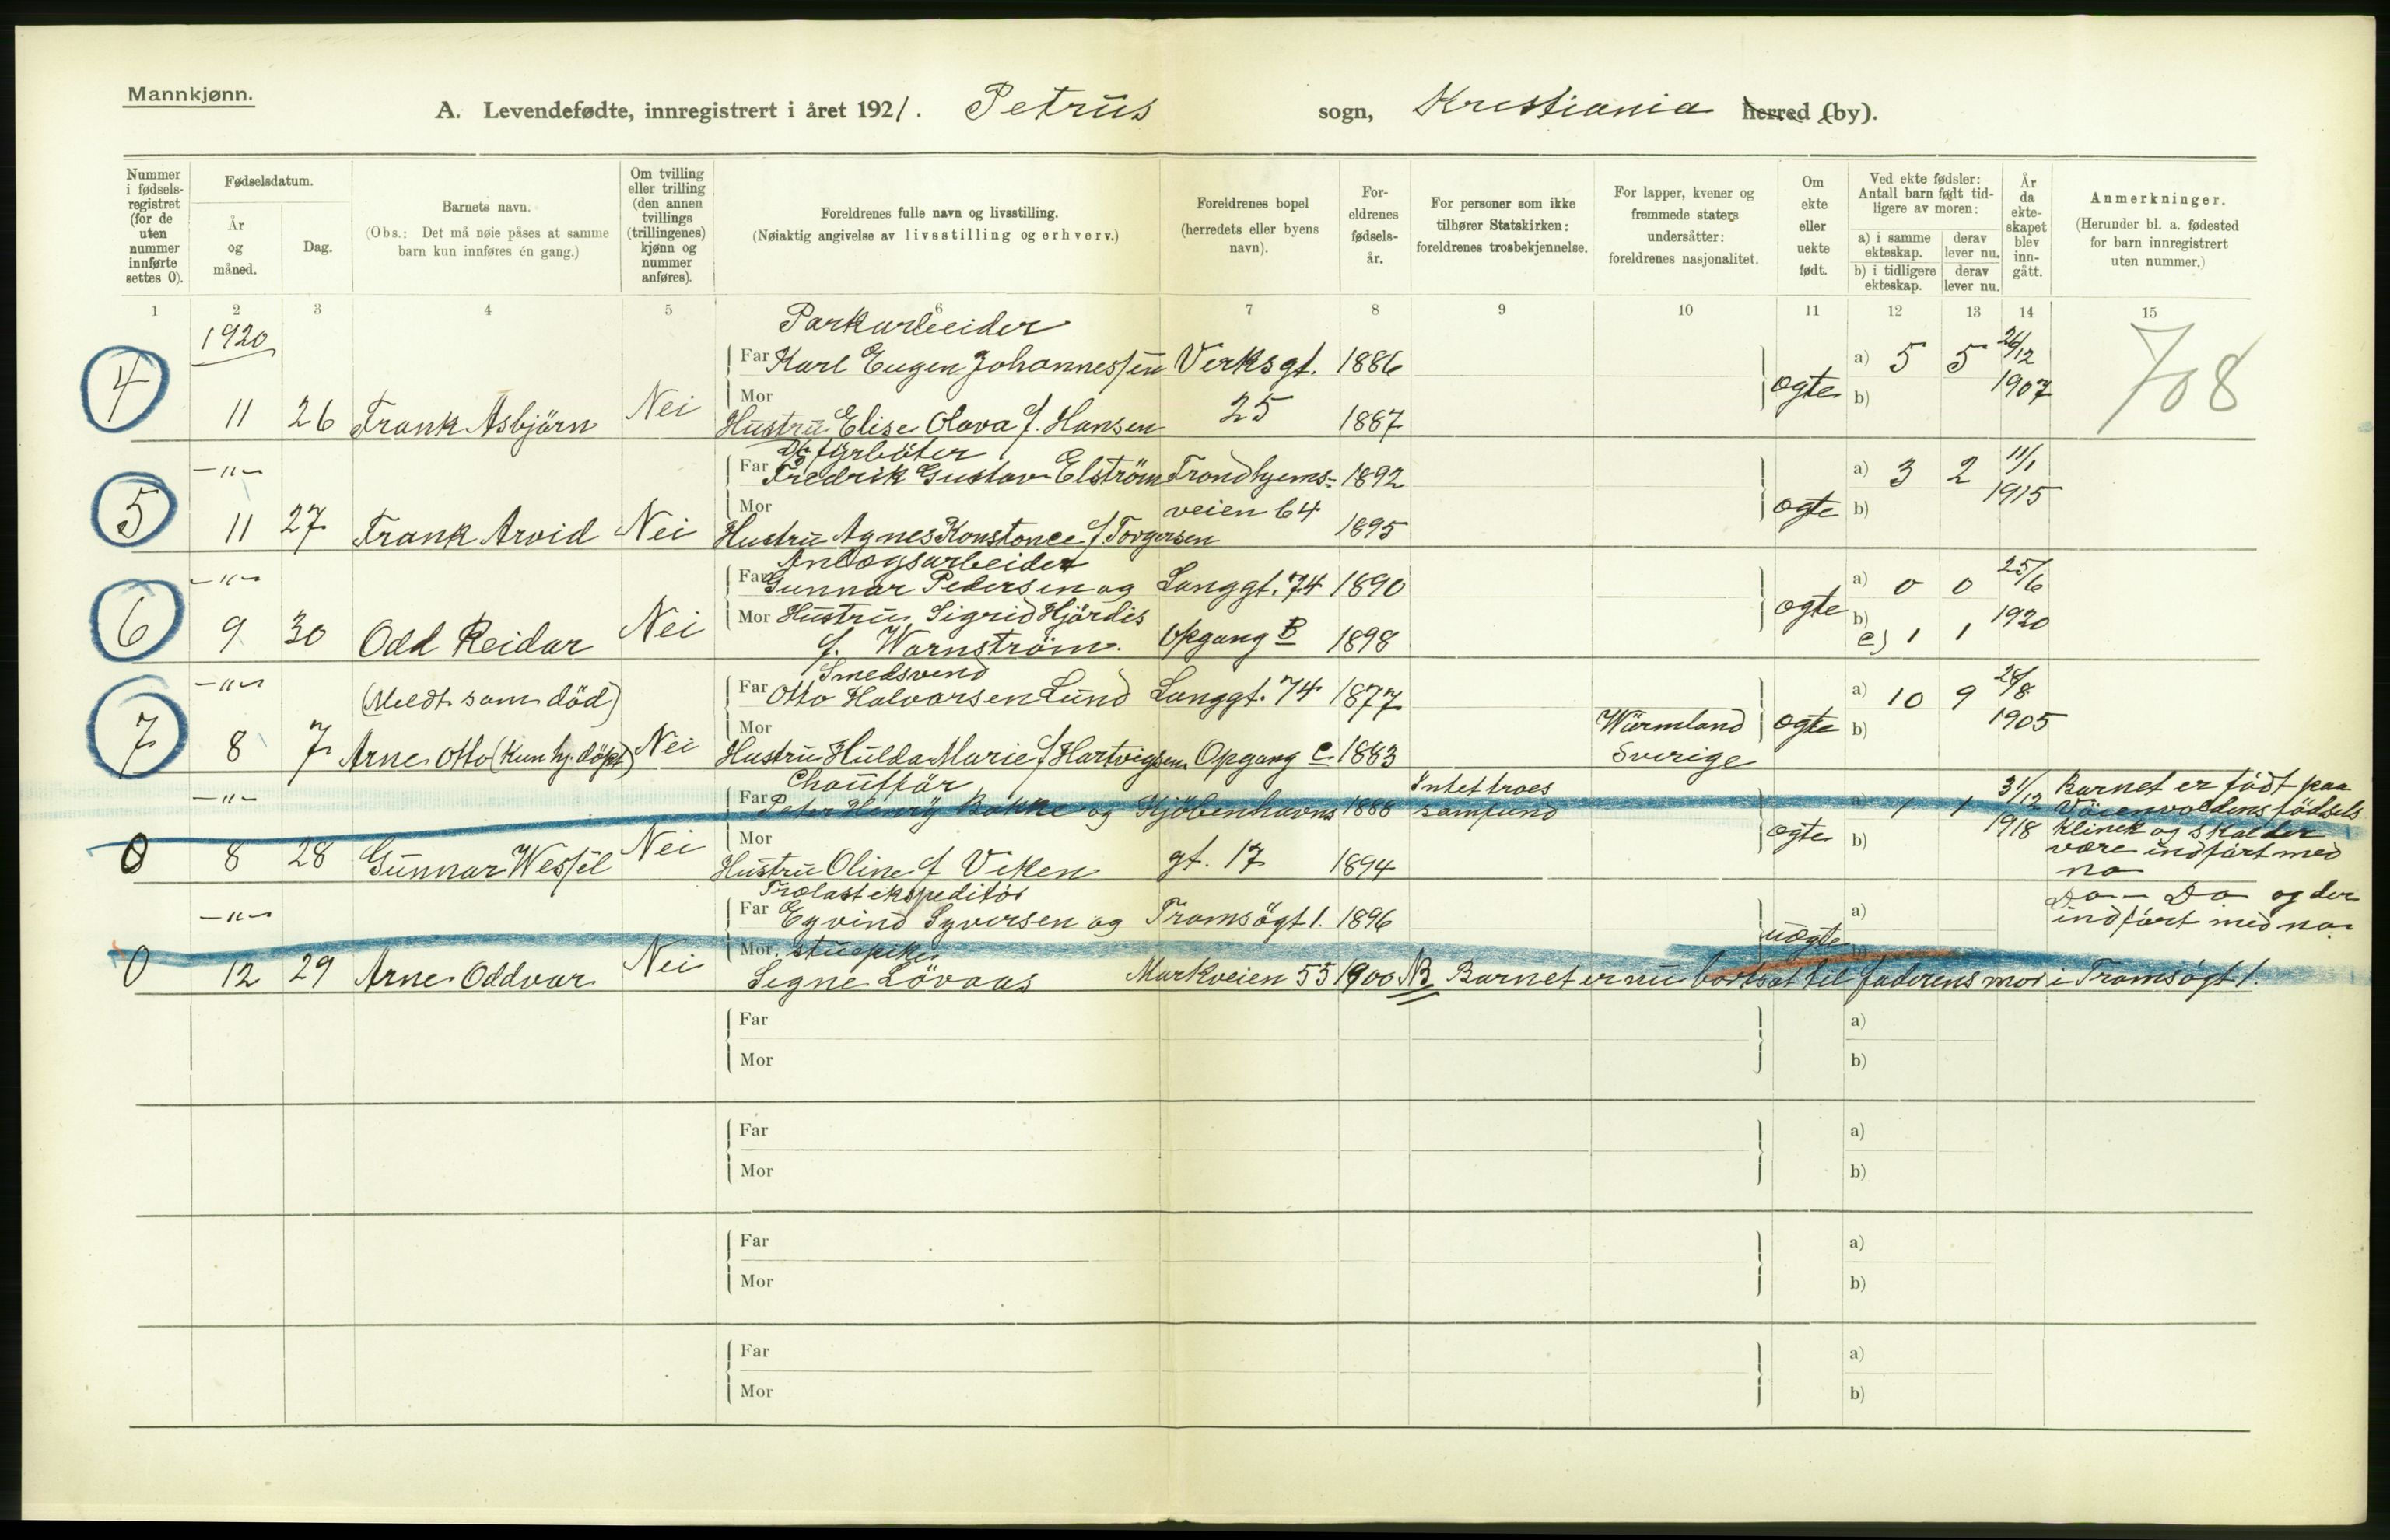 Mannkjønn.
A. Levendefødte, innregistrert i året 1921. Petrus sogn, Kristiania herred (by).
Nummer i fødselsregistret (for de uten nummer innførte settes 0).
Fødselsdatum.
År og måned.
Dag.
Barnets navn.
(Obs.: Det må nøie påses at samme barn kun innføres én gang.)
Om tvilling eller trilling (den annen tvillings (trillingenes) kjønn og nummer anføres).
Foreldrenes fulle navn og livsstilling.
(Nøiaktig angivelse av livsstilling og erhverv.)
Foreldrenes bopel (herredets eller byens navn).
Foreldrenes fødselsår.
For personer som ikke tilhører Statskirken: foreldrenes trosbekjennelse.
For lapper, kvener og fremmede staters undersåtter: foreldrenes nasjonalitet.
Om ekte eller uekte født.
Ved ekte fødsler: Antall barn født tidligere av moren:
a) i samme ekteskap. derav lever nu.
b) i tidligere ekteskap. derav lever nu.
År da ekteskapet blev inngått.
Anmerkninger.
(Herunder bl. a. fødested for barn innregistrert uten nummer.)
1 2 3 4 5 6 7 8 9 10 11 12 13 14 15
1920 Parkarbeider
Far Karl Eugen Johannessen Verksgt. 1886 a) 5 5 26/12 708
4 11 26 Frank Asbjörn Nei Mor Hustru Elise Olava f. Hansen 25 1887 ægte b) 1907
—"— fyrböter
Far Fredrik Gustav Elström Trondhjems- 1892 a) 3 2 11/1
5 11 27 Frank Arvid Nei Mor Hustru Agnes Konstance f. Torgersen veien 64 1895 ægte b) 1915
—"— Anlægsarbeider
Far Gunnar Pedersen og Langgt. 74 1890 a) 0 0 25/6
6 9 30 Odd Reidar Nei Mor Hustru Sigrid Hjördis ægte b) 1920
f. Warnström. Opgang B 1898 c) 1 1
—"— (Meldt som död) Smedsvend
Far Otto Halvorsen Lund Langgt. 74 1877 a) 10 9 28/8
7 8 7 Arne Otto (Kun hj. döpt) Nei Mor Hustru Hulda Marie f Hartvigsen Opgang C 1883 Wärmland Sverige ægte b) 1905
—"— Chaufför Intet troes
Far Peter Henry Bakke og Kjöbenhavns 1888 samfund a) 1 1 31/12 Barnet er födt paa
Vöienvoldens födsels
0 8 28 Gunnar Wessel Nei Mor Hustru Oline f Veken gt. 17 1894 ægte b) 1918 klinik og skal der
være indfört med
no
—"— Trælastekspeditör
Far Eyvind Syversen og Tromsögt 1. 1896 a) Do — Do og der
indfört med no.
0 12 29 Arne Oddvar Nei Mor stuepike uægte
Signe Lövaas Markveien 55 1900 NB Barnet er nu bortsat til faderens mor i Tromsögt 1.
Far a)
Mor b)
Far a)
Mor b)
Far a)
Mor b)
Far a)
Mor b)